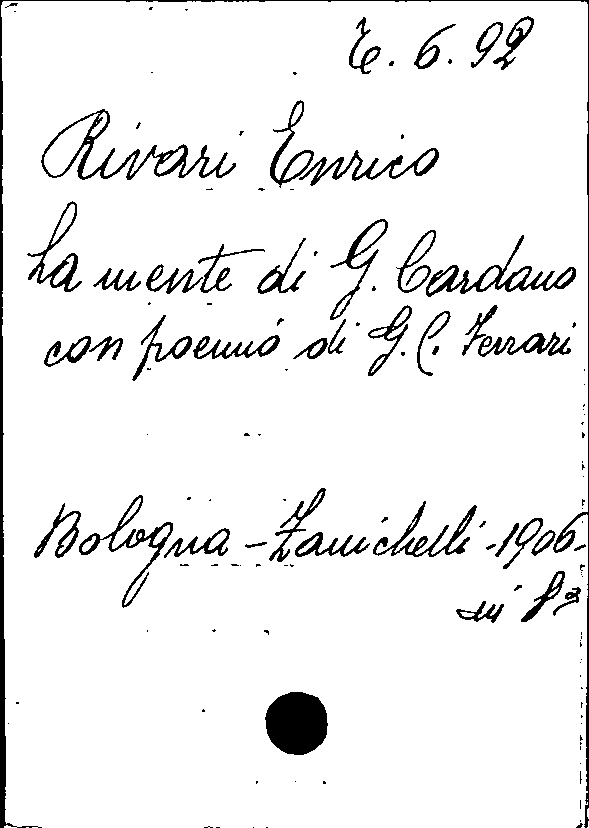 E. 6. 92
Rivari Enrico
La mente di G. Cardano
con proemio di G. C. Ferrari
Bologna - Zanichelli - 1906 -
in 8º